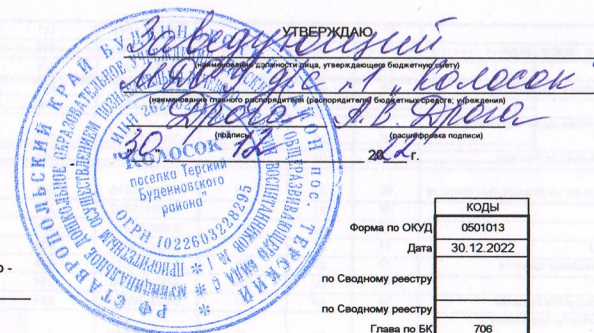 УТВЕРЖДАЮ
Заведующий
(наименование должности лица, утверждающего бюджетную смету)
д/с №1 "Колосок
(наименование главного распорядителя (распорядителя) бюджетных средств; учреждения)
Дрога А.В. Дрога
(подпись) (расшифровка подписи)
"30" 12 2022 г.
РФ * СТАВРОПОЛЬСКИЙ КРАЙ
пос. ТЕРСКИЙ
МУНИЦИПАЛЬНОЕ ДОШКОЛЬНОЕ ОБРАЗОВАТЕЛЬНОЕ УЧРЕЖДЕНИЕ
ОБЩЕРАЗВИВАЮЩЕГО ВИДА С ПРИОРИТЕТНЫМ ОСУЩЕСТВЛЕНИЕМ
ВОСПИТАННИКОВ № 1
ИНН
"КОЛОСОК
поселка Терский
Буденновского
района"
ОГРН 1022603228295
КОДЫ
Форма по ОКУД 0501013
Дата 30.12.2022
по Сводному реестру
по Сводному реестру
Глава по БК 706